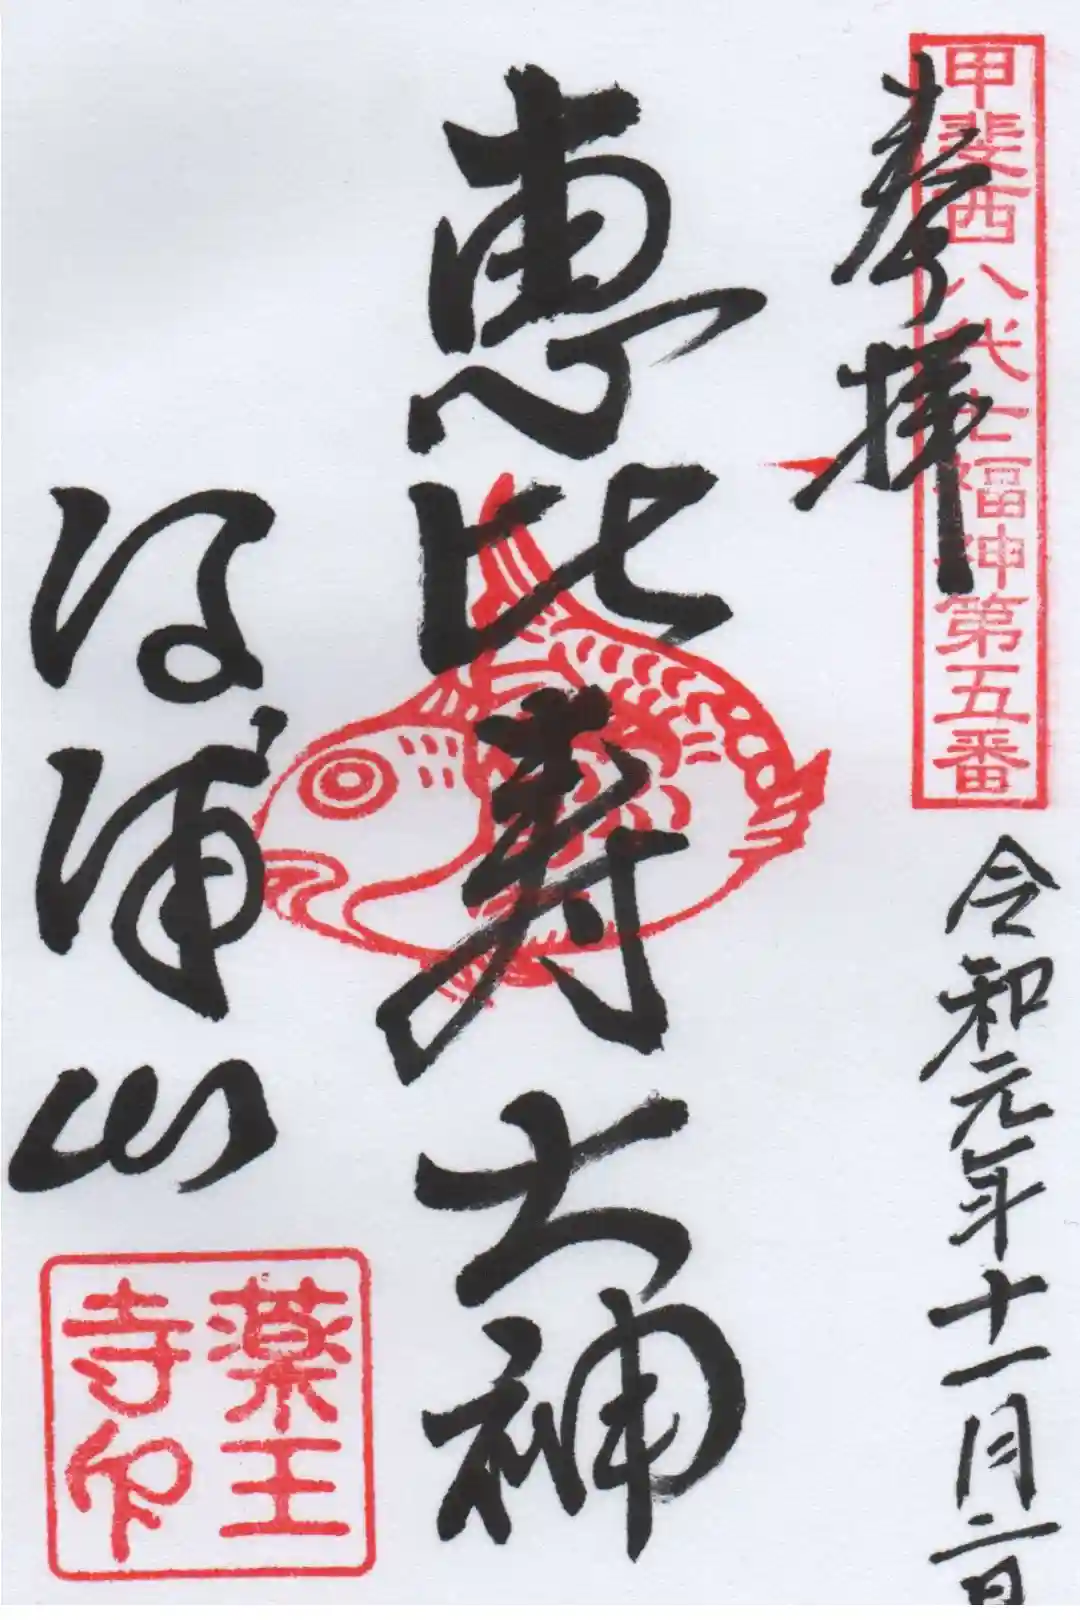 甲斐西八代七福神第五番
奉拝
令和元年十一月二日
恵比寿大神
浦山
薬王
寺印